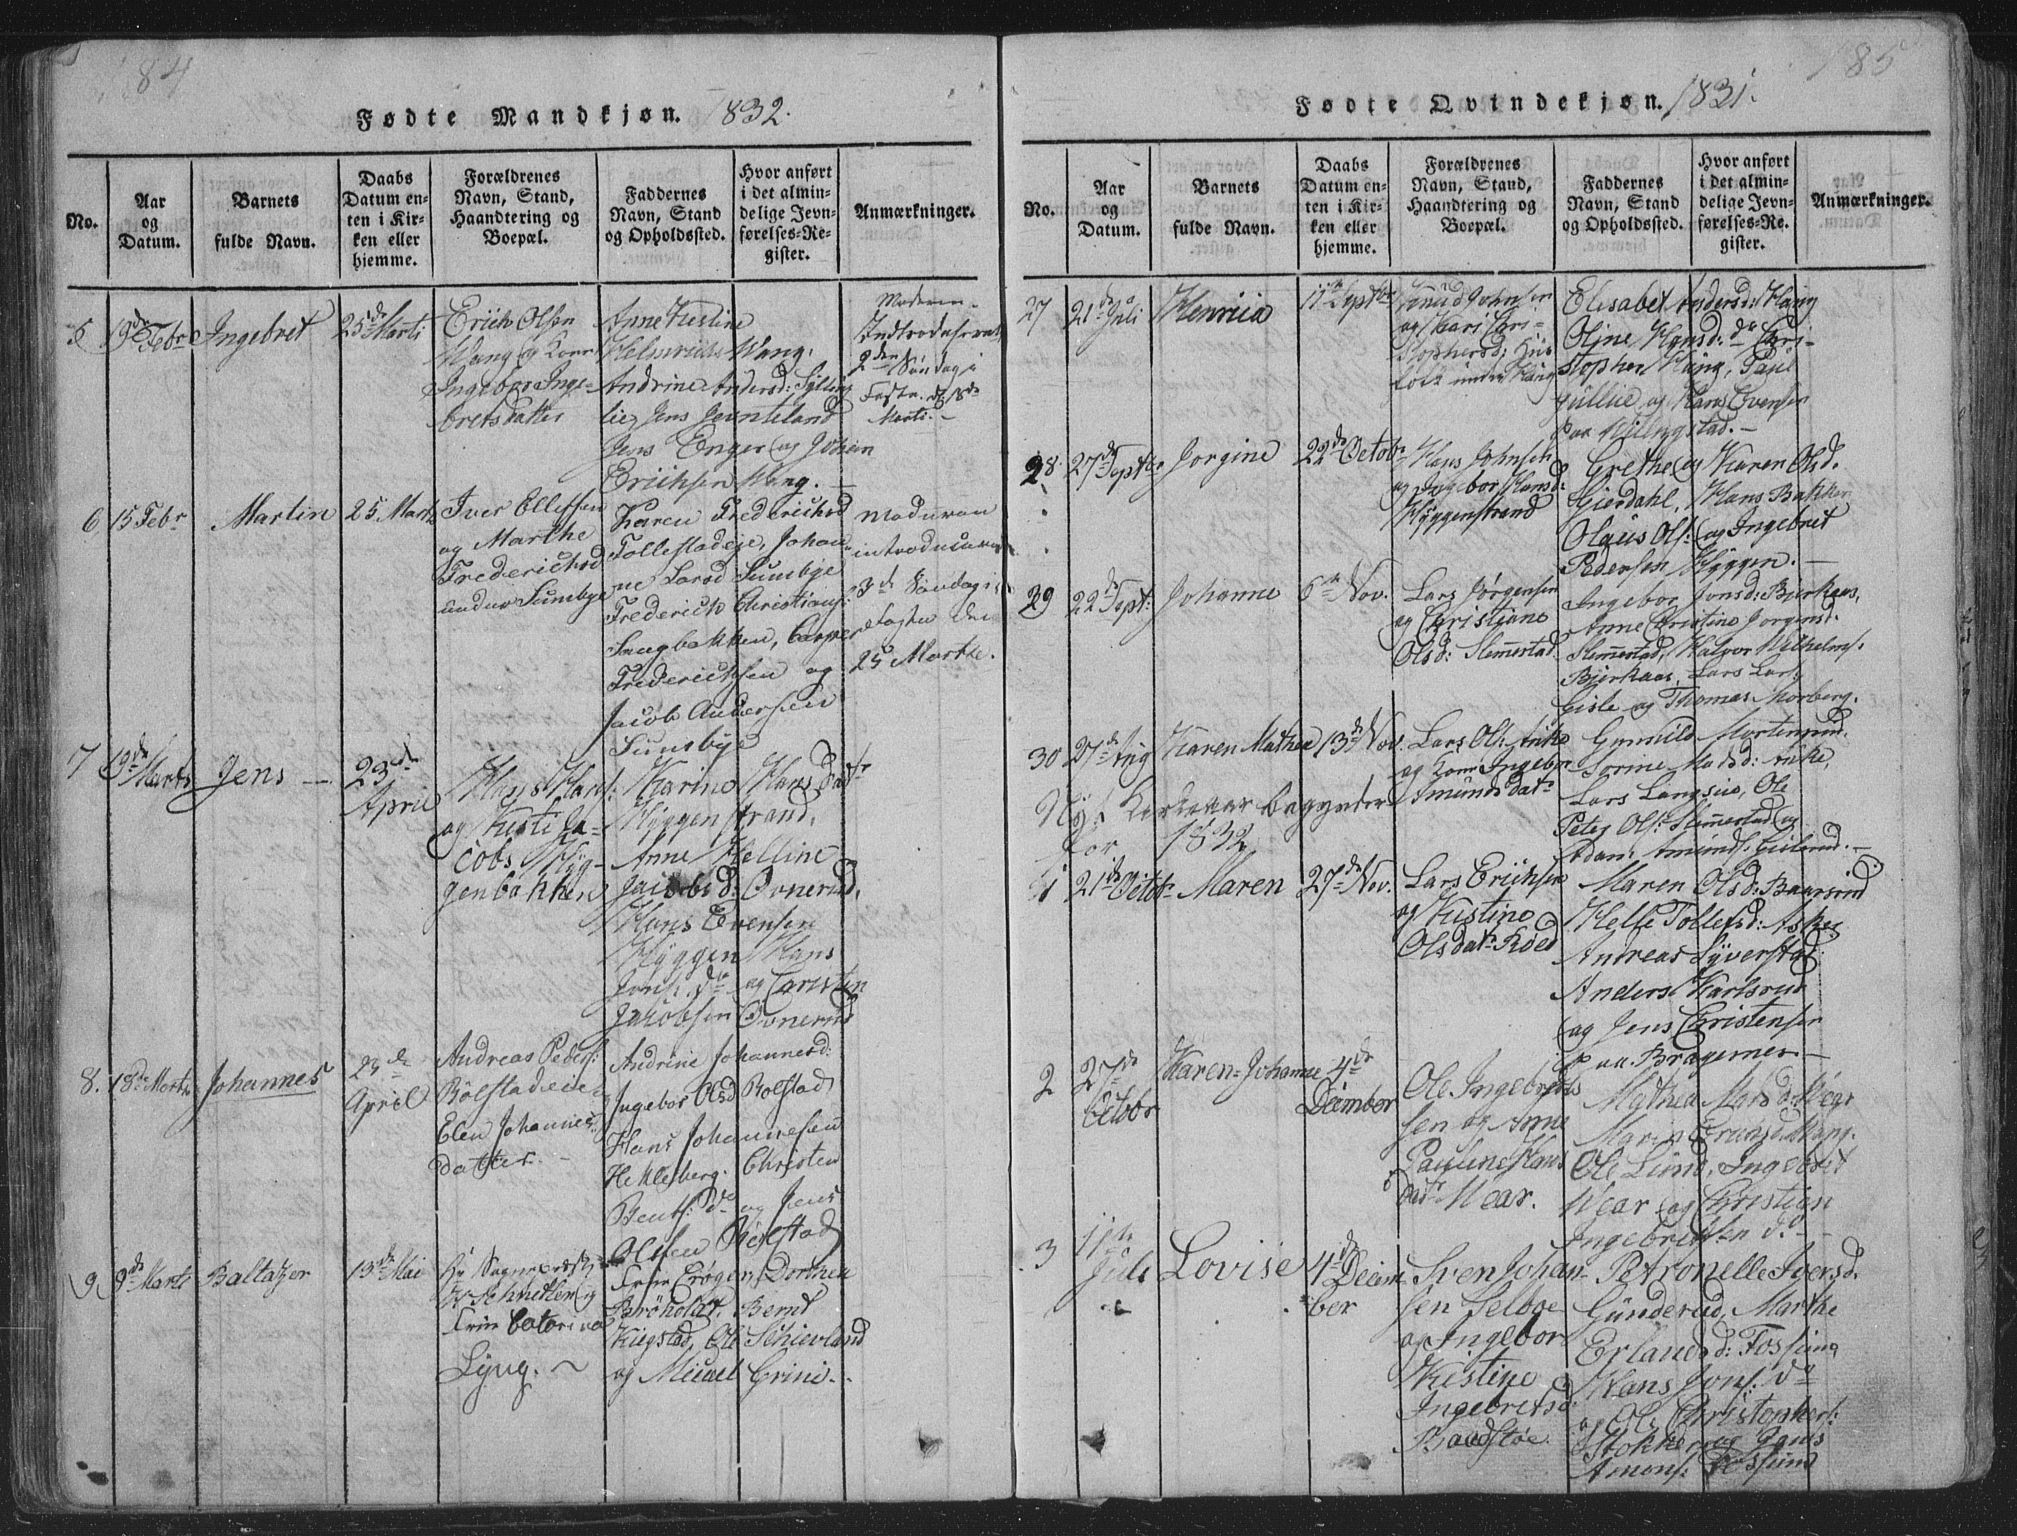 184
Fødte Mandkjøn. 1832.
No.
Aar
og
Datum.
Barnets
fulde Navn.
Daabs
Datum en-
ten i Kir-
ken eller
hjemme.
Forældrenes
Navn, Stand,
Haandtering og
Boepæl.
Faddernes
Navn, Stand
og Opholdssted.
Hvor anført
i det almin-
delige Jevn-
førelses-Re-
gister.
Anmærkninger.
5
19de Febr
Ingebret
25de Marti
Erich Olsen
Wang og Kone
Ingebor Inge-
bretsdatter
Anne Kustine
Helmrichs Wang,
Andrine Andersd: Sylling
lie, Jens Jevnteland
Jens Enger og Johan
Erichsen Wang. —
Moderen
Introduseret
2den Søndag i
Faste. d 18de
Marti. —
6
15 Febr
Martin
25 Marti
Iver Ellefsen
og Marthe
Frederichsd
under Sundbye
Karen Frederichsd
Tollefstadeje, Johan-
ne Larsd Sundbye
Frederich Christians:
Snagbakken, Casper
Frederichsen og
Jacob Andersen
Sundbye
Moderen
introduseret
3de Søndag i
Fasten den
25 Martii.
7
19de Marts
Jens —
23de
April
Hans Hans:
og Kusti Ja-
cobs Hÿg-
genbakken
Karine Hans Datr
Hÿggenstrand,
Anne Helline
Jacobsd: Ovnerud,
Hans Evensen
Hÿggen Hans
Jons: do og Christen
Jacobsen Ovnerud
8.
18de Marts
Johannes
23de
April
Andreas Peders:
Bölstadeie
Elen Johannes
datter. —
Andrine Johannesd:
Ingebor Olsd Bolstad
Hans Johannesen
Heklesberg. Christen
Bents: do og Jens
Olsen Bölstad
9
9de Marti
Baltazer
13de Mai
Hr Sognepræst
W Schnitler og
Frue Catarina
Lyng. ~
Frue Crøger, Dorthea
Brøholdt, Bernt
Kiegstad, Ole Schievland
og Micael Grini. -
185
Fødte Qvindekjøn. 1831.
No.
Aar
og
Datum.
Barnets
fulde Navn.
Daabs
Datum en-
ten i Kir-
ken eller
hjemme.
Forældrenes
Navn, Stand,
Haandtering og
Boepæl.
Faddernes
Navn, Stand
og Opholdssted.
Hvor anført
i det almin-
delige Jevn-
førelses-Re-
gister.
Anmærkninger.
27
21de Juli
Henricà
11te Septbr
Knud Johnsen
og Kari Chri-
stophersd; Hus
folk under Haug
Elisabet Andersd: Haug
Oline Hansd: do Chri-
stopher Haug, Paul
Gullie og Hans Evensen
paa Killingstad. —
28
27de Septbr
Jorgine
22de Octobr
Hans Johnsen
og Ingebor Hansd:
Hÿggenstrand
Grethe og Karen Olsd.
Gierdahl, Hans Bakken
Olaus Ols: og Ingebret
Pedersen Hÿggen. —
29
22de Sept:
Johanne
6te Nov.
Lars Jörgensen
og Christiane
Olsd: Slemmestad
Ingebor Jonsd: Bierkaas,
Anne Christine Jorgensd.
Slemmestad, Halvor Wilhelms:
Bierkaas, Lars Lars:
Gisle og Thomas Morberg.
30
27de Aug
Karen Mathea
13de Nov.
Lars Ols: Auke
og Kone Ingebor
Amunds datr
Gunnild Mortensrud.
Sorine Madsd: Auke,
Lars Langsiæ, Ole
Peter Ols: Slemmestad og
Adam Amunds: Gislerud. —
Nyt Kirkeaar begynder
for 1832
1
21de Octobr
Maren
27de Nov.
Lars Erichsen
og Kustine
Olsdatr Röed
Maren Olsd: Baarsrud
Helle Tollefsd: Asker
Andreas Syverstad
Anders Karlsrud
og Jens Christensen
paa Bragernes —
2
27de
Octobr
Karen Johanne
4de
Decmber
Ole Ingebrets
sen og Anne
Pauline Hans
datr Wear.
Mathea Mads d: Wear
Maria Eransd. Wang.
Ole Lund, Ingebret
Wear og Christian
Ingebretsen do —
3
11te
Juli
Lovise
4de
Decem
ber
Sven Johan-
sen Selvoe
og Ingebor
Kestine
Ingebretsd:
Baadstøe.
Petronelle Iversd.
Gunderud, Marthe
Erlandsd: Fossum
Hans Jons: do
og Ole Christophers:
Stokker og Gans
Amons: Fossum